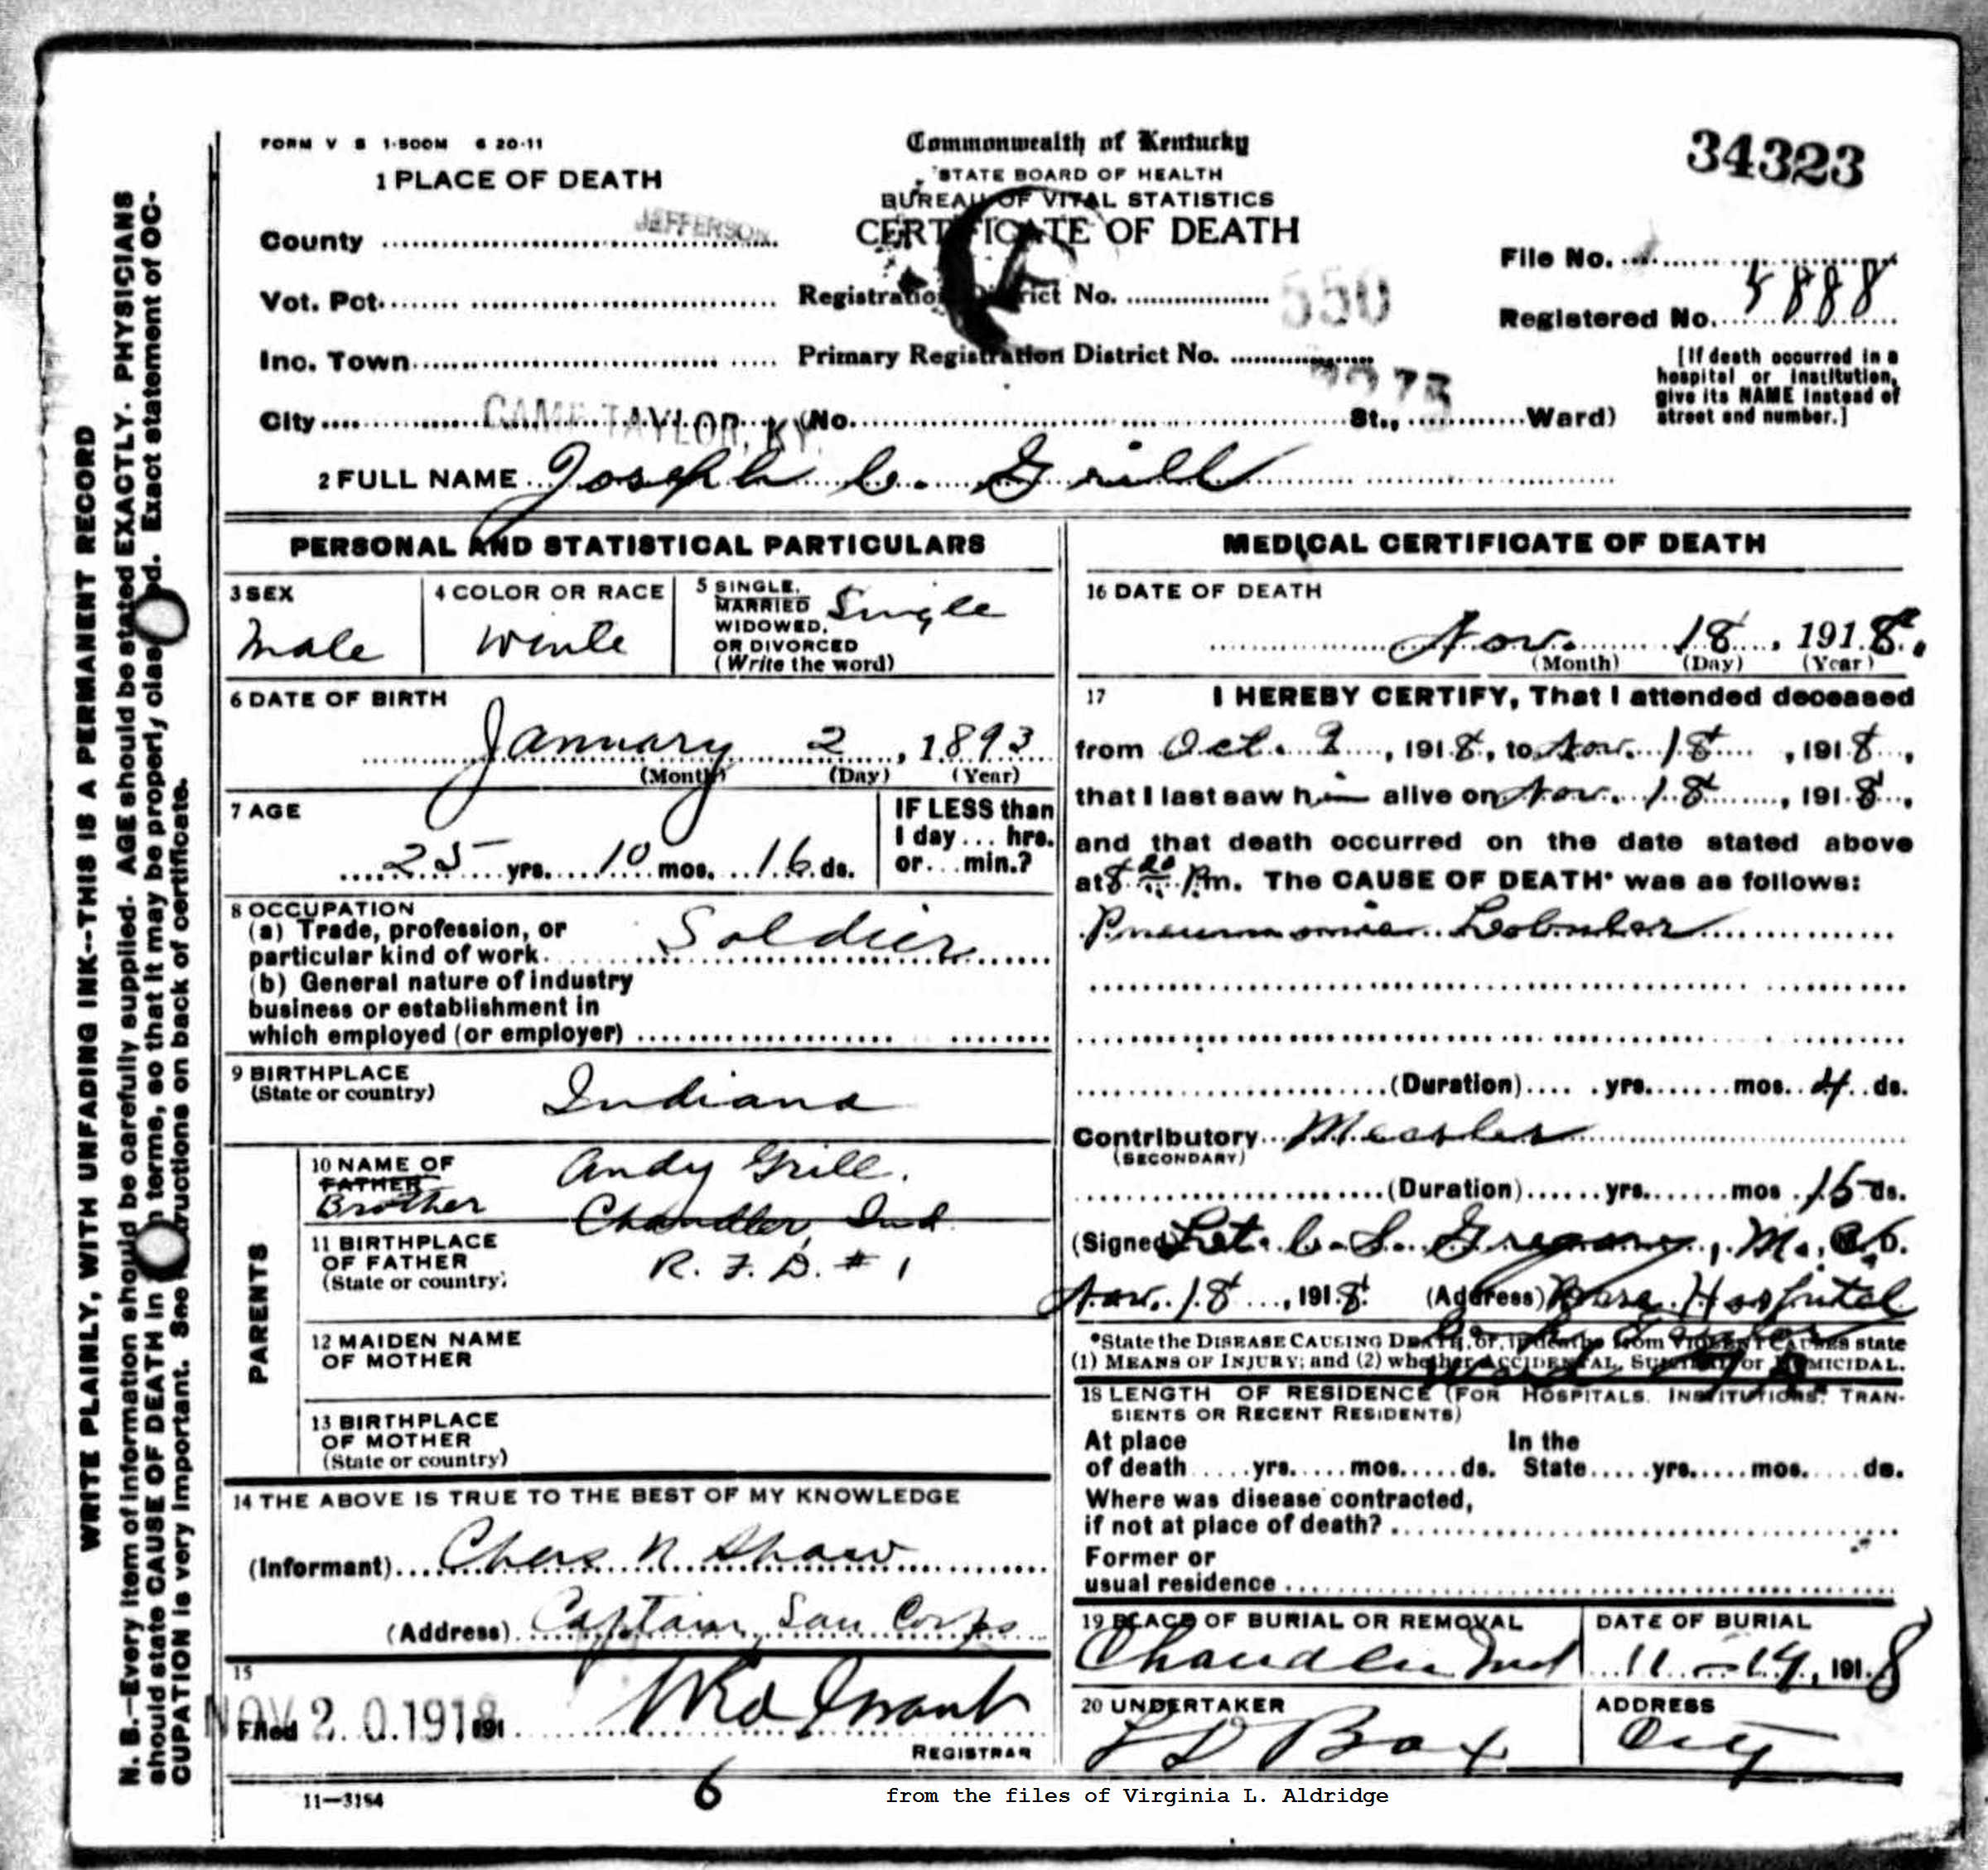 FORM V S 1-500M 6 20-11
Commonwealth of Kentucky
34323
1 PLACE OF DEATH
STATE BOARD OF HEALTH
BUREAU OF VITAL STATISTICS
CERTIFICATE OF DEATH
County JEFFERSON
File No.
Vot. Pct. Registration District No. 550
Registered No. 5888
Inc. Town Primary Registration District No.
[If death occurred in a
hospital or institution,
give its NAME instead of
street and number.]
City CAMP TAYLOR, KY. (No. St., Ward)
2 FULL NAME Joseph C. Grill
PERSONAL AND STATISTICAL PARTICULARS
3 SEX
Male
4 COLOR OR RACE
White
5 SINGLE,
MARRIED
WIDOWED,
OR DIVORCED
(Write the word)
Single
6 DATE OF BIRTH
January 2, 1893
(Month) (Day) (Year)
7 AGE
25 yrs. 10 mos. 16 ds.
IF LESS than
1 day ... hrs.
or ... min.?
8 OCCUPATION
(a) Trade, profession, or
particular kind of work. Soldier
(b) General nature of industry
business or establishment in
which employed (or employer)
9 BIRTHPLACE
(State or country)
Indiana
PARENTS
10 NAME OF
FATHER
Brother
Andy Grill.
Chandler, Ind
R. F. D. # 1
11 BIRTHPLACE
OF FATHER
(State or country)
12 MAIDEN NAME
OF MOTHER
13 BIRTHPLACE
OF MOTHER
(State or country)
14 THE ABOVE IS TRUE TO THE BEST OF MY KNOWLEDGE
(Informant) Chas N Shaw
(Address) Captain, San Corps
15
Filed NOV 20 1918 191
REGISTRAR
11-3184
6
MEDICAL CERTIFICATE OF DEATH
16 DATE OF DEATH
Nov. 18, 1918.
(Month) (Day) (Year)
17 I HEREBY CERTIFY, That I attended deceased
from Oct. 9, 1918, to Nov. 18, 1918,
that I last saw him alive on Nov. 18, 1918,
and that death occurred on the date stated above
at 8 20 Pm. The CAUSE OF DEATH* was as follows:
Pneumonia Lobular
(Duration) yrs. mos. 4 ds.
Contributory Measles
(SECONDARY)
(Duration) yrs. mos. 15 ds.
(Signed) C. S. Gregory, M.
Nov. 18, 1918. (Address) Base Hospital
*State the DISEASE CAUSING DEATH, or, in deaths from VIOLENT CAUSES state
(1) MEANS OF INJURY; and (2) whether ACCIDENTAL, SUICIDAL or HOMICIDAL.
18 LENGTH OF RESIDENCE (FOR HOSPITALS, INSTITUTIONS, TRAN-
SIENTS OR RECENT RESIDENTS)
At place In the
of death yrs. mos. ds. State yrs. mos. ds.
Where was disease contracted,
if not at place of death?
Former or
usual residence
19 PLACE OF BURIAL OR REMOVAL
Chandler Ind
DATE OF BURIAL
11-19, 1918
20 UNDERTAKER
L D Bax
ADDRESS
City
from the files of Virginia L. Aldridge
WRITE PLAINLY, WITH UNFADING INK--THIS IS A PERMANENT RECORD
N. B.--Every item of information should be carefully supplied. AGE should be stated EXACTLY. PHYSICIANS
should state CAUSE OF DEATH in terms, so that it may be properly classified. Exact statement of OC-
CUPATION is very important. See instructions on back of certificate.